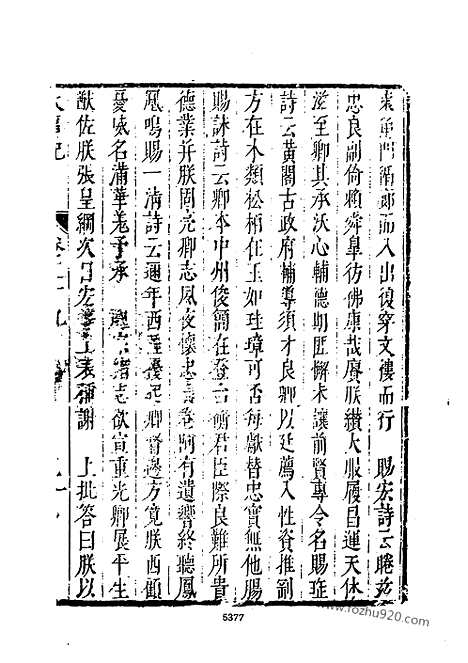 東華門循廊而入出復穿文樓而行　賜宏詩云睠茲
忠良副倚賴舜皐彷彿康哉賡朕纘大服履昌運天休
滋至卿其承沃心輔德期匪懈未讓前賢專令名賜珤
詩云黃閣古政府輔導須才良卿以廷薦入性資推剛
方在木類松柏在玉如珪璋可否每獻替忠實無他腸
賜詠詩云卿本中州俊簡在登台衡君臣際良難所貴
德業并朕固元卿志夙夜懷忠卷阿有遺響終聽鳳
鳳鳴賜一清詩云邇年西陲擾起卿督邊方寬朕西顧
憂威名滿華羌予承　欲宣重光卿展平生
猷佐朕張皇綱次日宏等上表稱謝　上批答曰朕以
5377